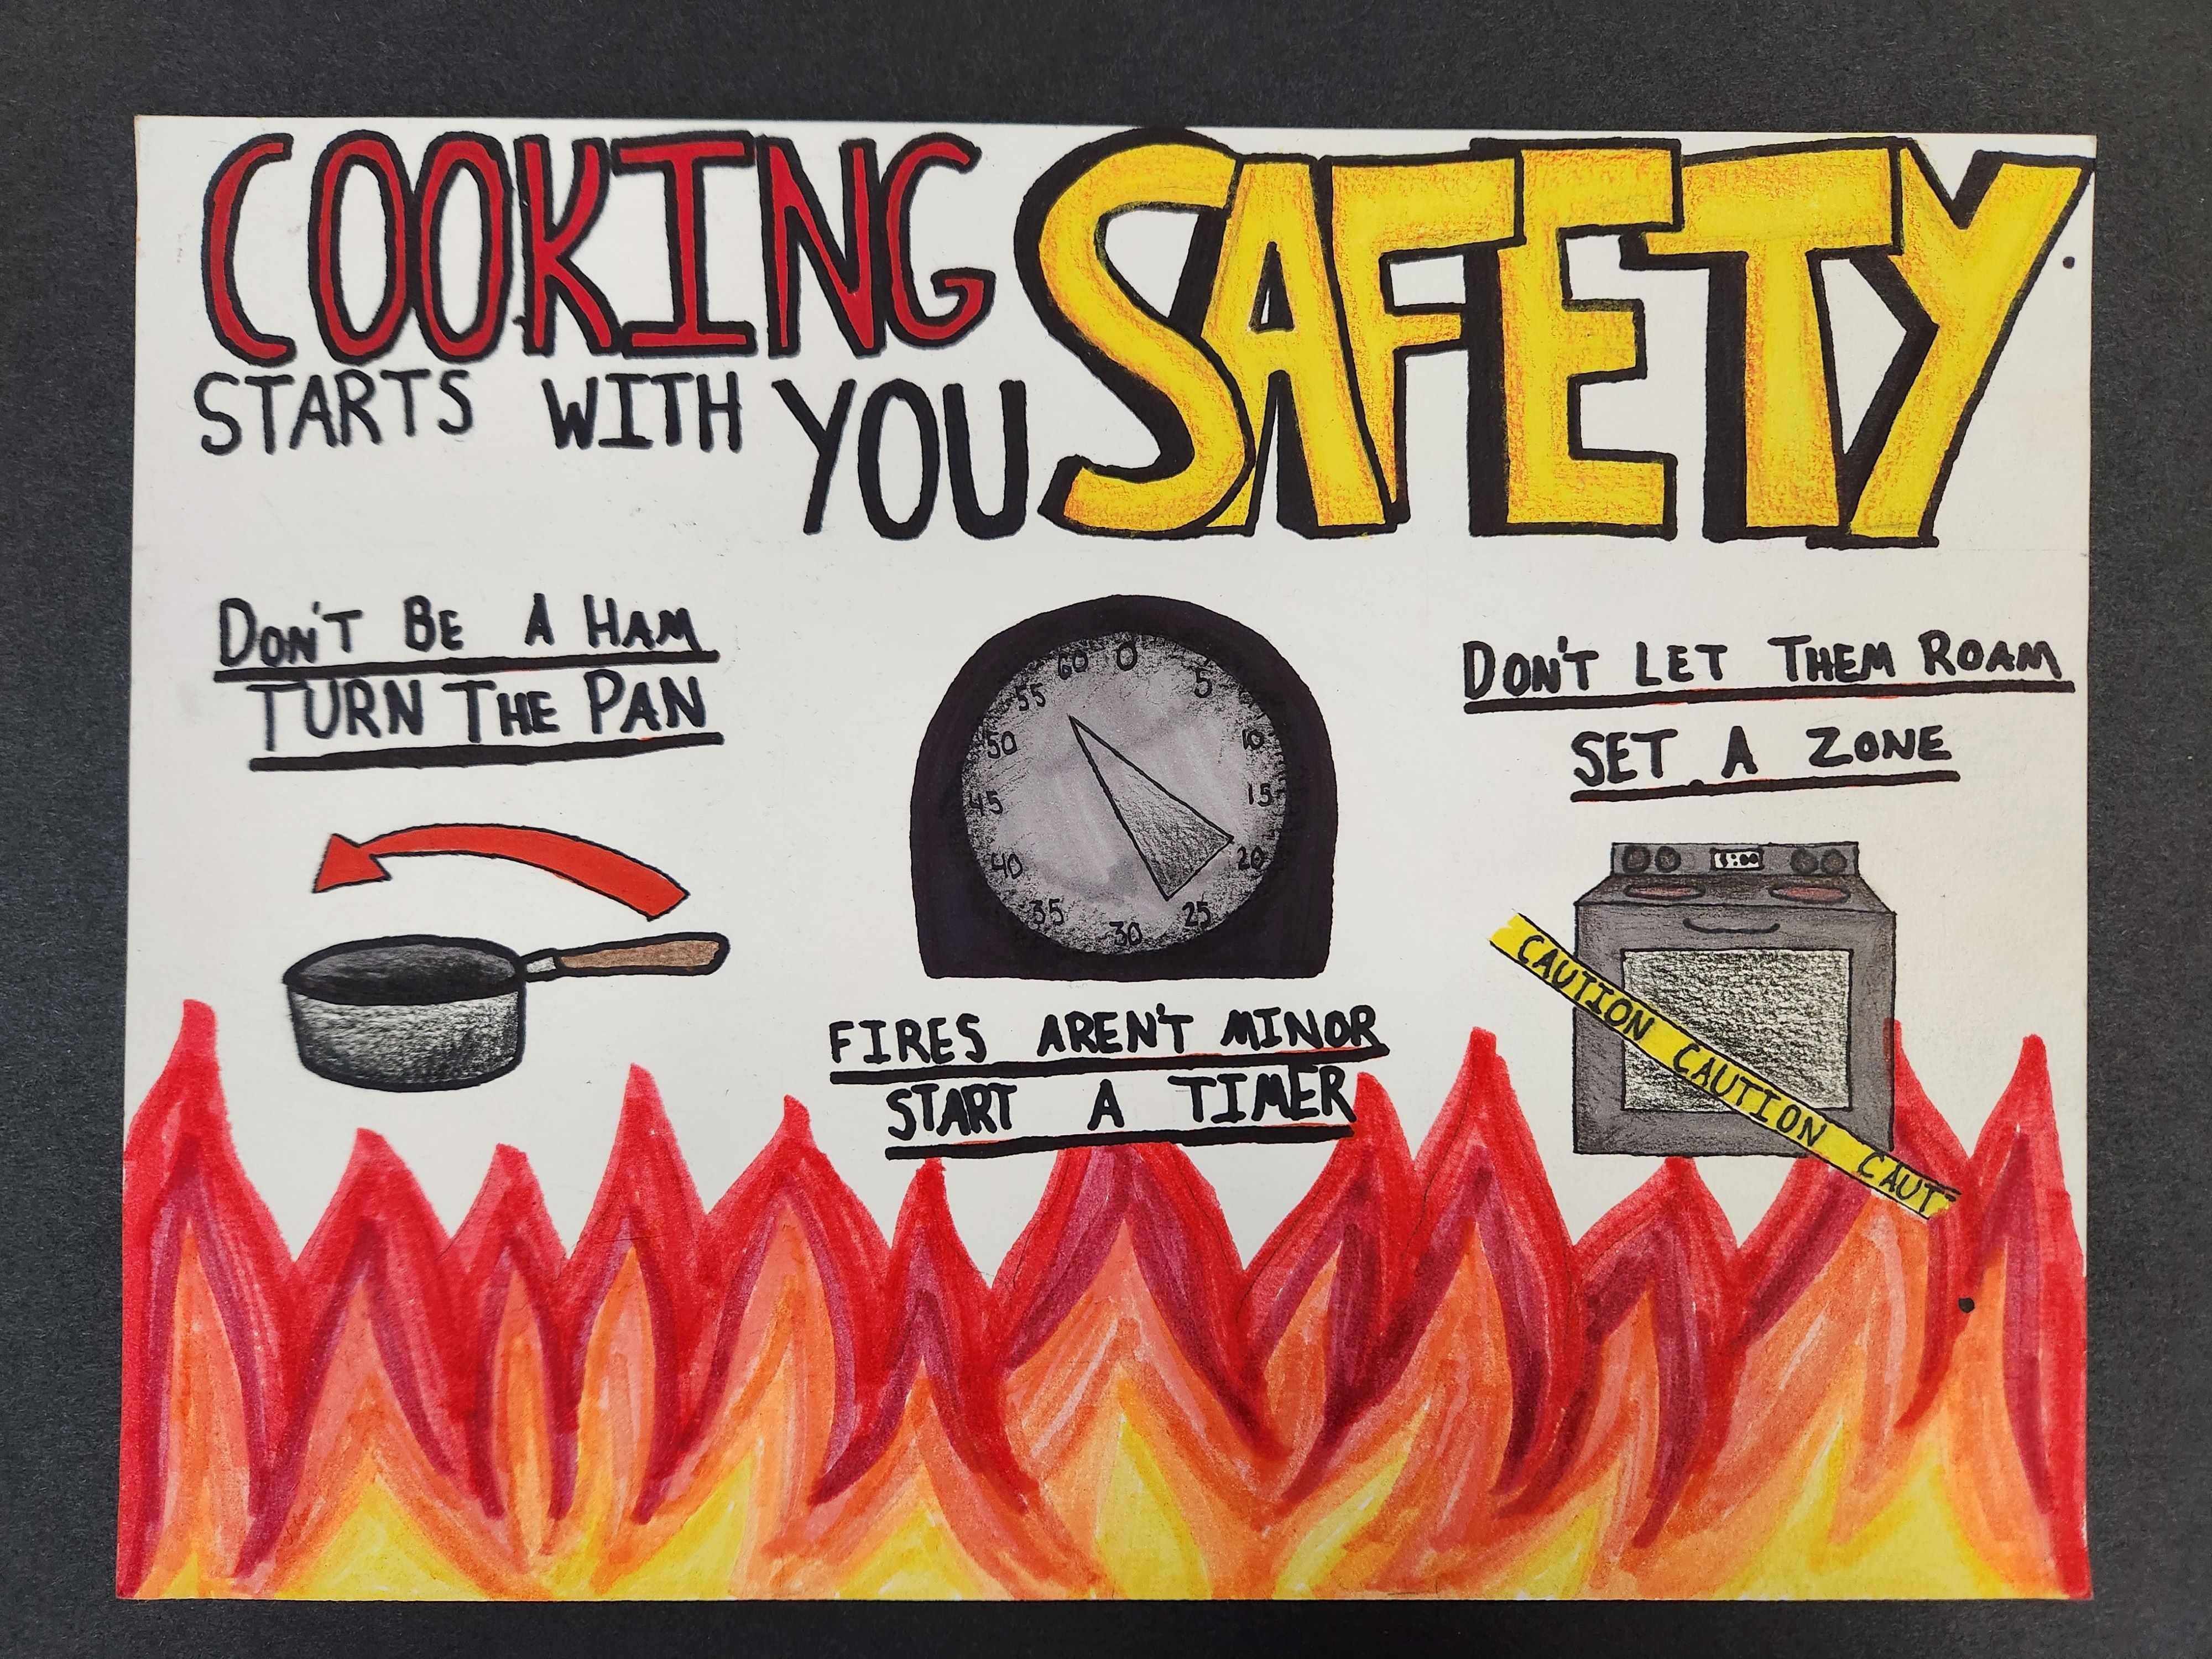 COOKING SAFETY
STARTS WITH YOU
DON'T BE A HAM
TURN THE PAN
60 0 5 10 15 20 25 30 35 40 45 50 55
FIRES AREN'T MINOR
START A TIMER
DON'T LET THEM ROAM
SET A ZONE
CAUTION CAUTION CAUT